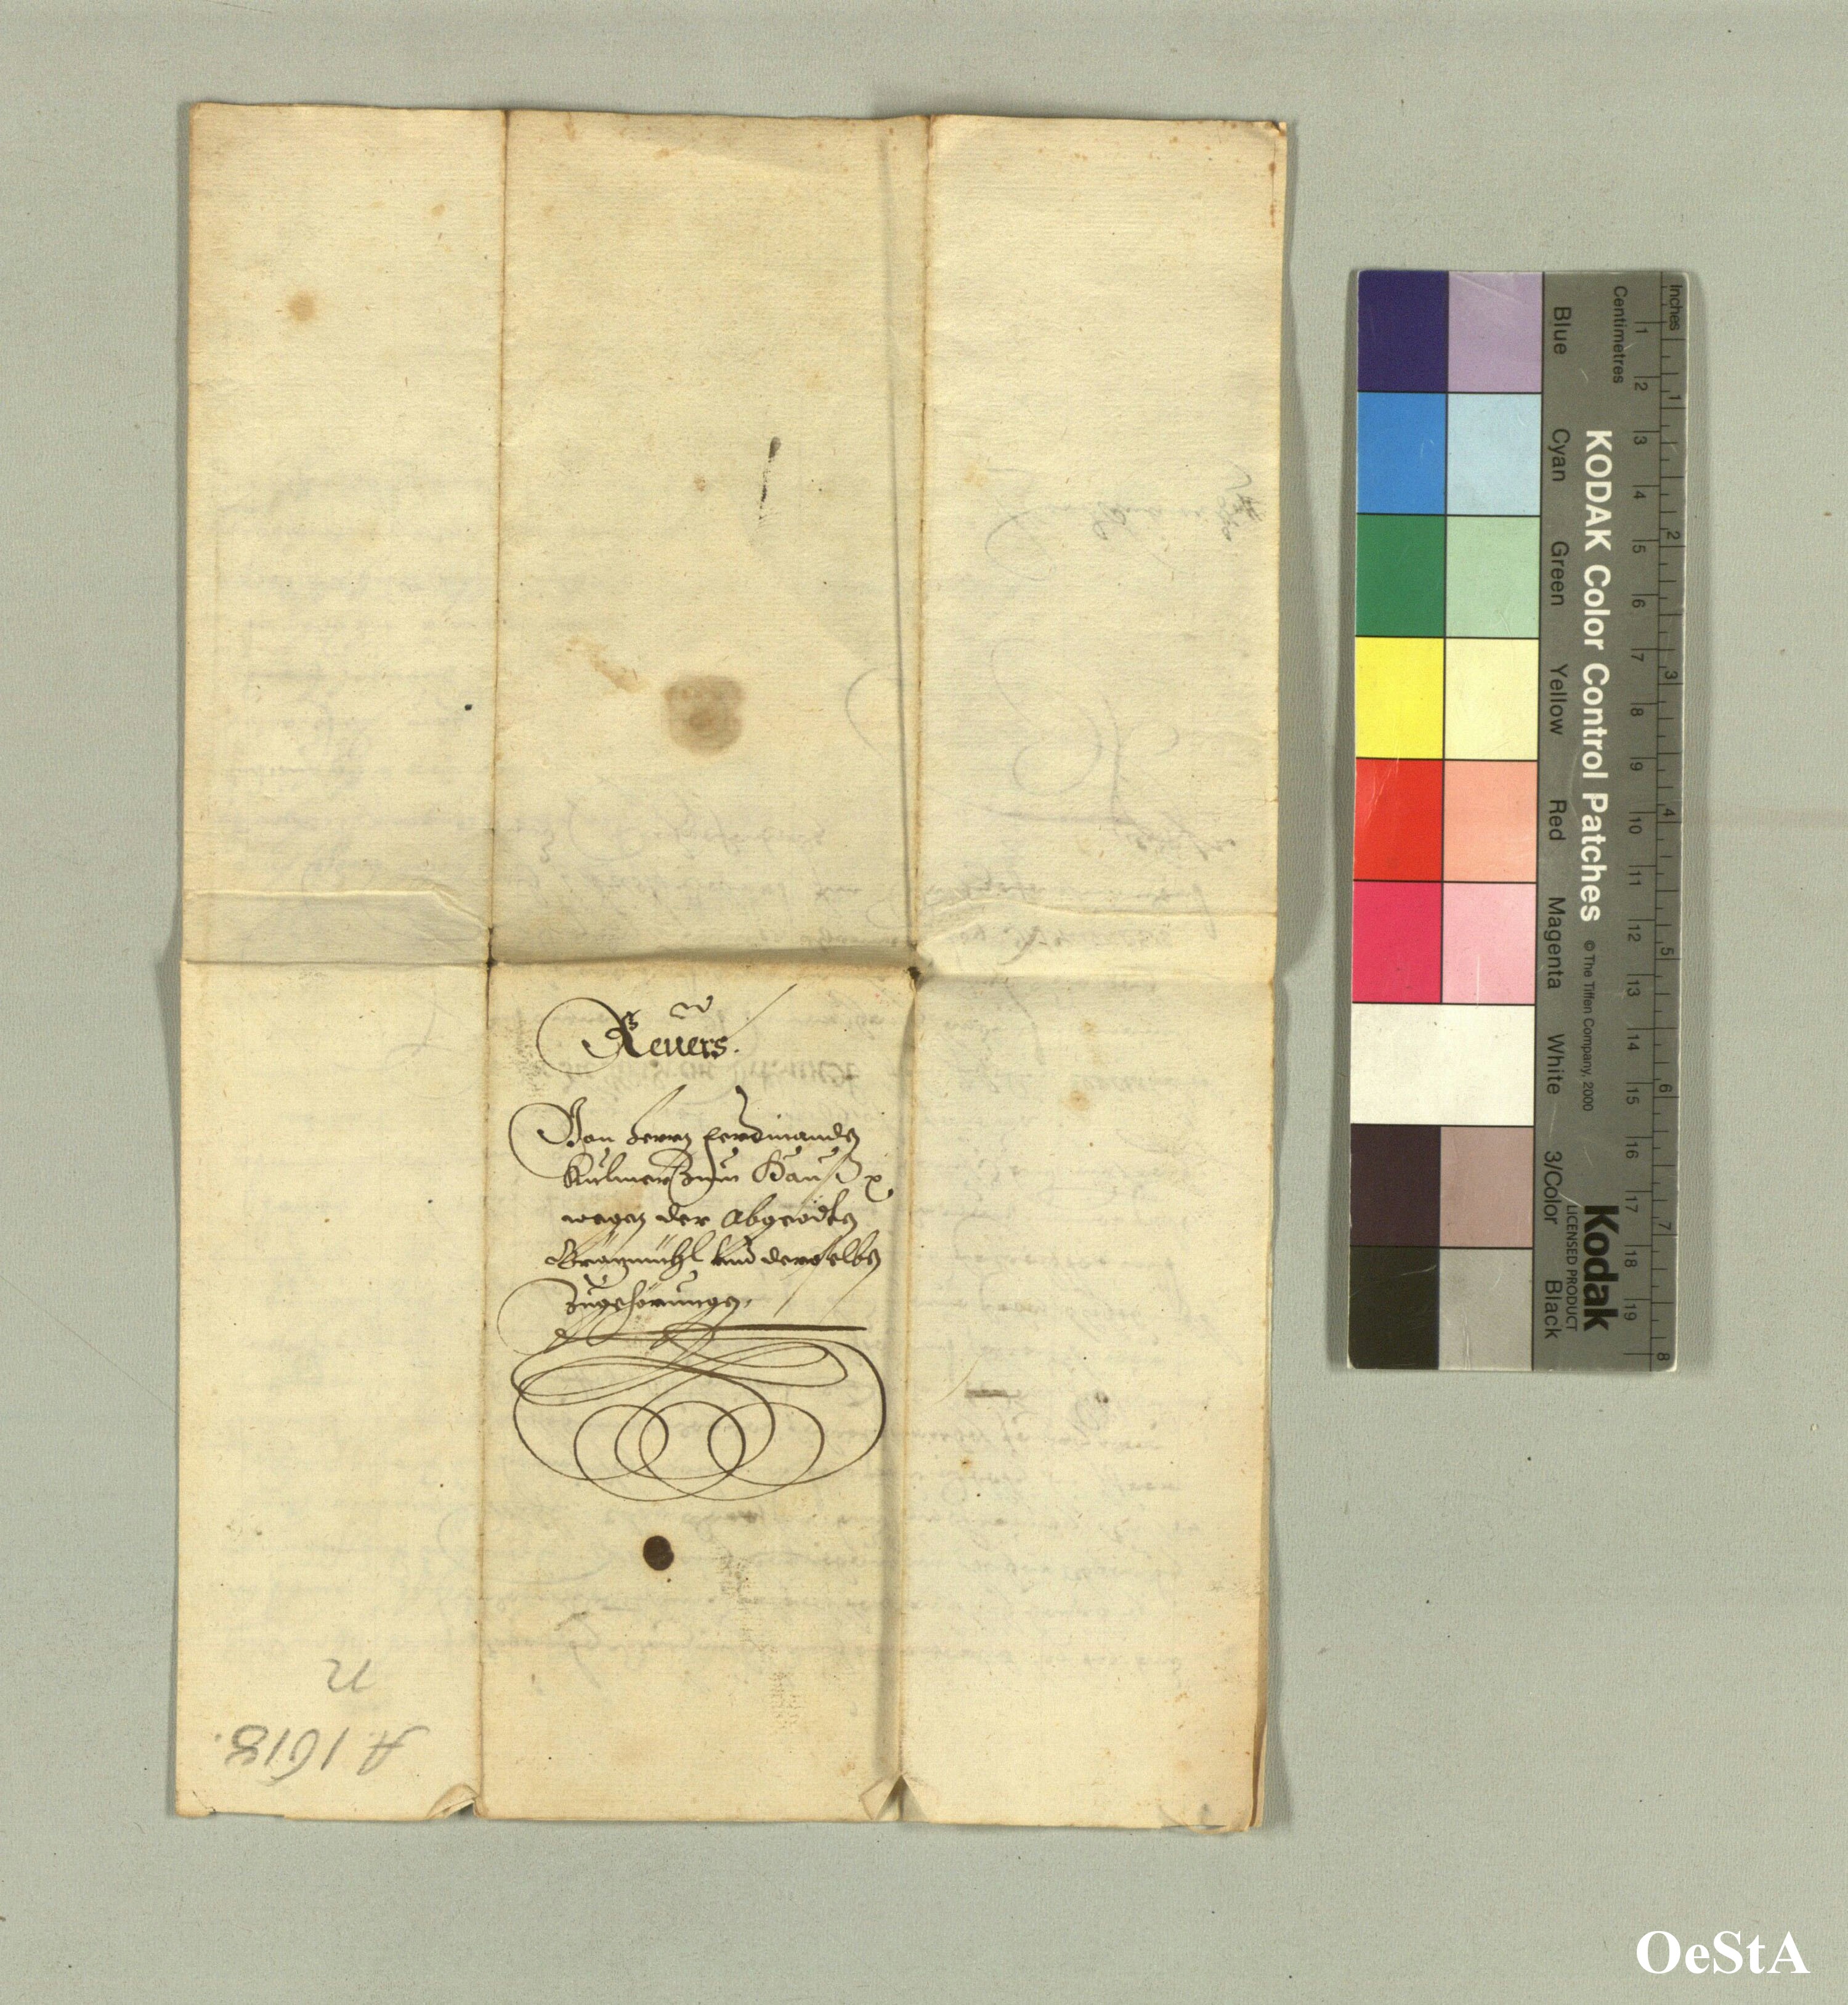 Reuers.
Von herrn Ferdinanden
Kulmer zum Hauß
wegen der Abgeödten
vnd derselben
Zugehörungen.
A. 1618.
Inches
Centimetres
1 2 3 4 5 6 7 8 9 10 11 12 13 14 15 16 17 18 19
1 2 3 4 5 6 7 8
KODAK Color Control Patches © The Tiffen Company, 2000
Kodak
LICENSED PRODUCT
Blue Cyan Green Yellow Red Magenta White 3/Color Black
OeStA